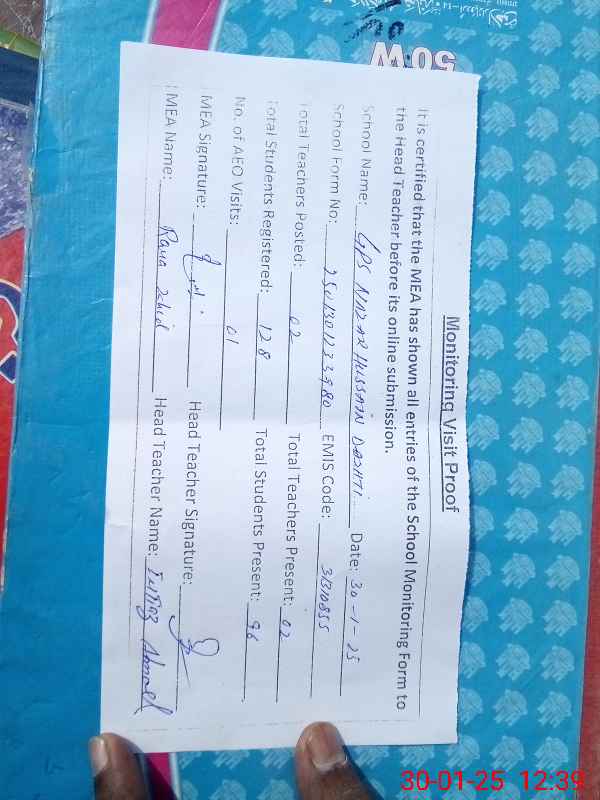 50W
Monitoring Visit Proof
It is certified that the MEA has shown all entries of the School Monitoring Form to
the Head Teacher before its online submission.
School Name: GPS NIZAR HUSSAIN DASHTI Date: 30-1-25
School Form No: EMIS Code: 31310855
Total Teachers Posted: 02 Total Teachers Present: 02
Total Students Registered: 128 Total Students Present: 96
No. of AEO Visits: 01
MEA Signature: Head Teacher Signature:
MEA Name: Rana Head Teacher Name: Imtiaz Ahmed
30-01-25 12:39